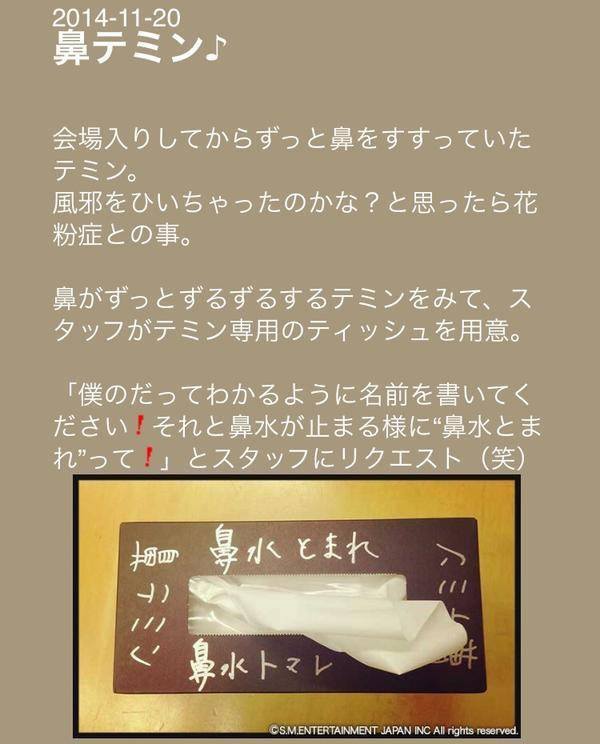 2014-11-20
鼻テミン♪
会場入りしてからずっと鼻をすすっていた
テミン。
風邪をひいちゃったのかな？と思ったら花
粉症との事。
鼻がずっとずるずるするテミンをみて、ス
タッフがテミン専用のティッシュを用意。
「僕のだってわかるように名前を書いてく
ださい❗それと鼻水が止まる様に“鼻水とま
れ”って❗」とスタッフにリクエスト（笑）
鼻水とまれ
鼻テミン
鼻テミン
鼻水トマレ
©S.M.ENTERTAINMENT JAPAN INC All rights reserved.